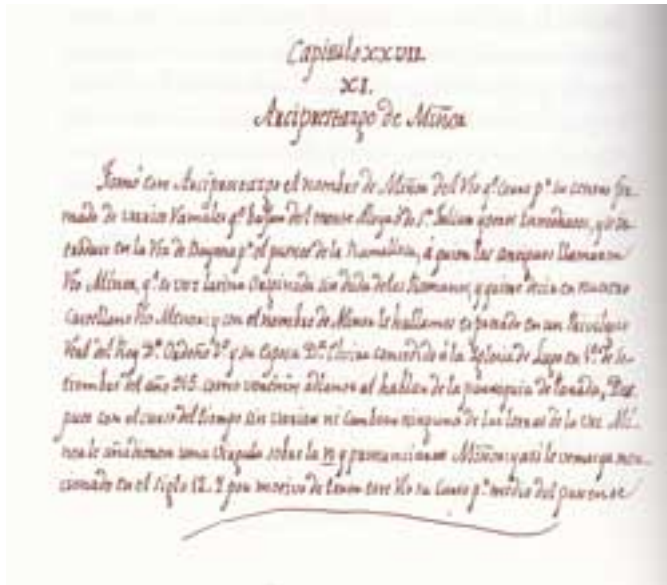 Capitulo XXVII.
XI.
Arciprestazgo de Miñor
Tomó este Arciprestazgo el nombre de Miñor del Rio qe corre pr su centro for-
mado de varios Ramales qe bajan del monte Aloya de Sn Julian y otros inmediatos, y se in-
troduce en la Ria de Bayona pr el puente de la Ramallosa, á quien los antiguos llamaron
Rio Minor, qe es voz latina originada sin duda de los Romanos, y quiere decir en nuestro
Castellano Rio Menor: y con el nombre de Minor le hallamos expresado en un Privilegio
Real del Rey Dn Ordoño 2o y su esposa Da Elvira concedido á la Iglesia de Lugo en 1o de Se-
tiembre del año 915. como veremos adelante al hablar de la parroquia de Panxón, Des-
pues con el curso del tiempo sin variar ni cambiar ninguna de las letras de la voz Mi-
nor le añadieron una virgula sobre la n y pronunciaron Miñor: y asi le vemos ya men-
cionado en el siglo 12. Y por motivo de tener este Rio su curso pr medio del